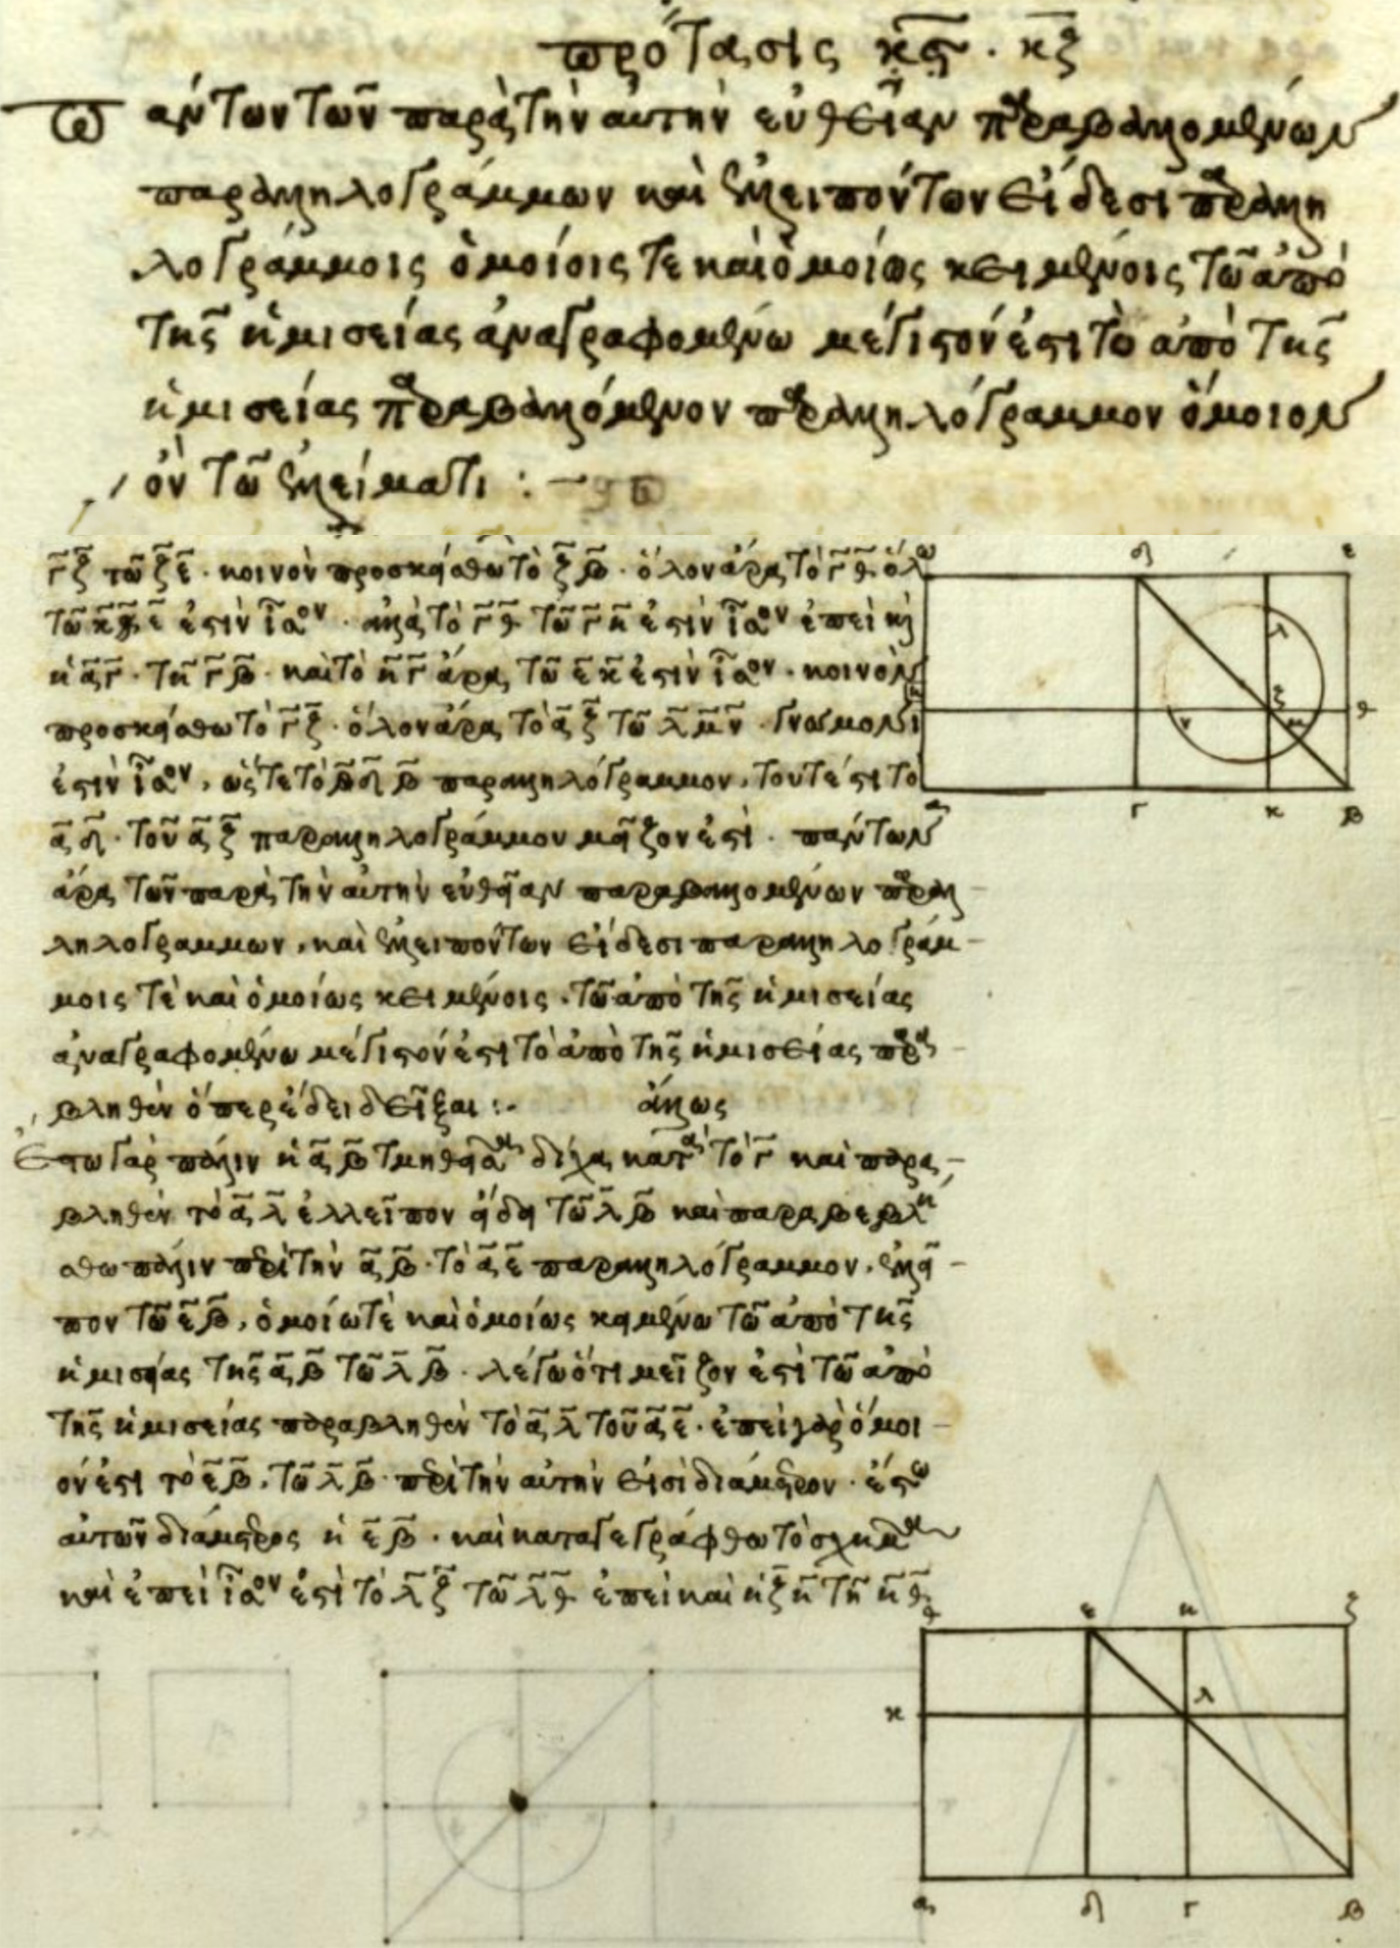 πρότασις κϛ · κζ
Πάντων τῶν παρὰ τὴν αὐτὴν εὐθεῖαν παραβαλλομένων
παραλληλογράμμων καὶ ἐλλειπόντων εἴδεσι παραλλη
λογράμμοις ὁμοίοις τε καὶ ὁμοίως κειμένοις τῶ ἀπὸ
τῆς ἡμισείας ἀναγραφομένω μέγιστόν ἐστι τὸ ἀπὸ τῆς
ἡμισείας παραβαλλόμενον παραλληλόγραμμον ὅμοιον
ὂν τῶ ἐλλείματι :-
γ̅ζ̅ τῶ ζ̅ε̅ · κοινὸν προσκείσθω τὸ ζ̅β̅ · ὅλον ἄρα τὸ γ̅θ̅ ὅλω
τῶ κ̅ε̅ ἐστὶν ἴσον · ἀλλὰ τὸ γ̅θ̅ τῶ γ̅η̅ ἐστὶν ἴσον ἐπεὶ καὶ
ἡ α̅γ̅ · τῆ γ̅β̅ · καὶ τὸ η̅γ̅ ἄρα τῶ ε̅κ̅ ἐστὶν ἴσον · κοινὸν
προσκείσθω τὸ γ̅ζ̅ · ὅλον ἄρα τὸ α̅ζ̅ τῶ λ̅μ̅ν̅ · γνώμονί
ἐστιν ἴσον, ὥστε τὸ δ̅β̅ παραλληλόγραμμον, τουτέστι τὸ
α̅δ̅ · τοῦ α̅ζ̅ παραλληλογράμμου μεῖζον ἐστὶ · πάντων
ἄρα τῶν παρὰ τὴν αὐτὴν εὐθεῖαν παραβαλλομένων παραλ-
ληλογράμμων, καὶ ἐλλειπόντων εἴδεσι παραλληλογράμ-
μοις τὲ καὶ ὁμοίως κειμένοις · τῶ ἀπὸ τῆς ἡμισείας
ἀναγραφομένω μέγιστόν ἐστι τὸ ἀπὸ τῆς ἡμισείας παρα-
βληθὲν ὅπερ ἔδει δεῖξαι :- ἄλλως
Ἔστω γὰρ πάλιν ἡ α̅β̅ τμηθεῖσα δίχα κατὰ τὸ γ̅ καὶ παρα-
βληθὲν τὸ α̅λ̅ ἐλλεῖπον εἴδει τῶ λ̅β̅ καὶ παραβεβλή
σθω πάλιν παρὰ τὴν α̅β̅ · τὸ α̅ε̅ παραλληλόγραμμον, ἐλλεῖ-
πον τῶ ε̅β̅, ὁμοίω τὲ καὶ ὁμοίως κειμένω τῶ ἀπὸ τῆς
ἡμισείας τῆς α̅β̅ τῶ λ̅β̅ · λέγω ὅτι μεῖζον ἐστὶ τῶ ἀπὸ
τῆς ἡμισείας παραβληθὲν τὸ α̅λ̅ τοῦ α̅ε̅ · ἐπεὶ γὰρ ὅμοι-
όν ἐστι τὸ ε̅β̅, τῶ λ̅β̅ · περὶ τὴν αὐτὴν εἰσὶ διάμετρον · ἔστω
αὐτῶν διάμετρος ἡ ε̅β̅ · καὶ καταγεγράφθω τὸ σχῆμα
καὶ ἐπεὶ ἴσον ἐστὶ τὸ λ̅ζ̅ τῶ λ̅θ̅ ἐπεὶ καὶ ἡ ζ̅η̅ τῆ η̅θ̅
δ ε
λ
ζ θ
ν μ
α γ κ β
θ ε η ζ
κ λ
α δ γ β